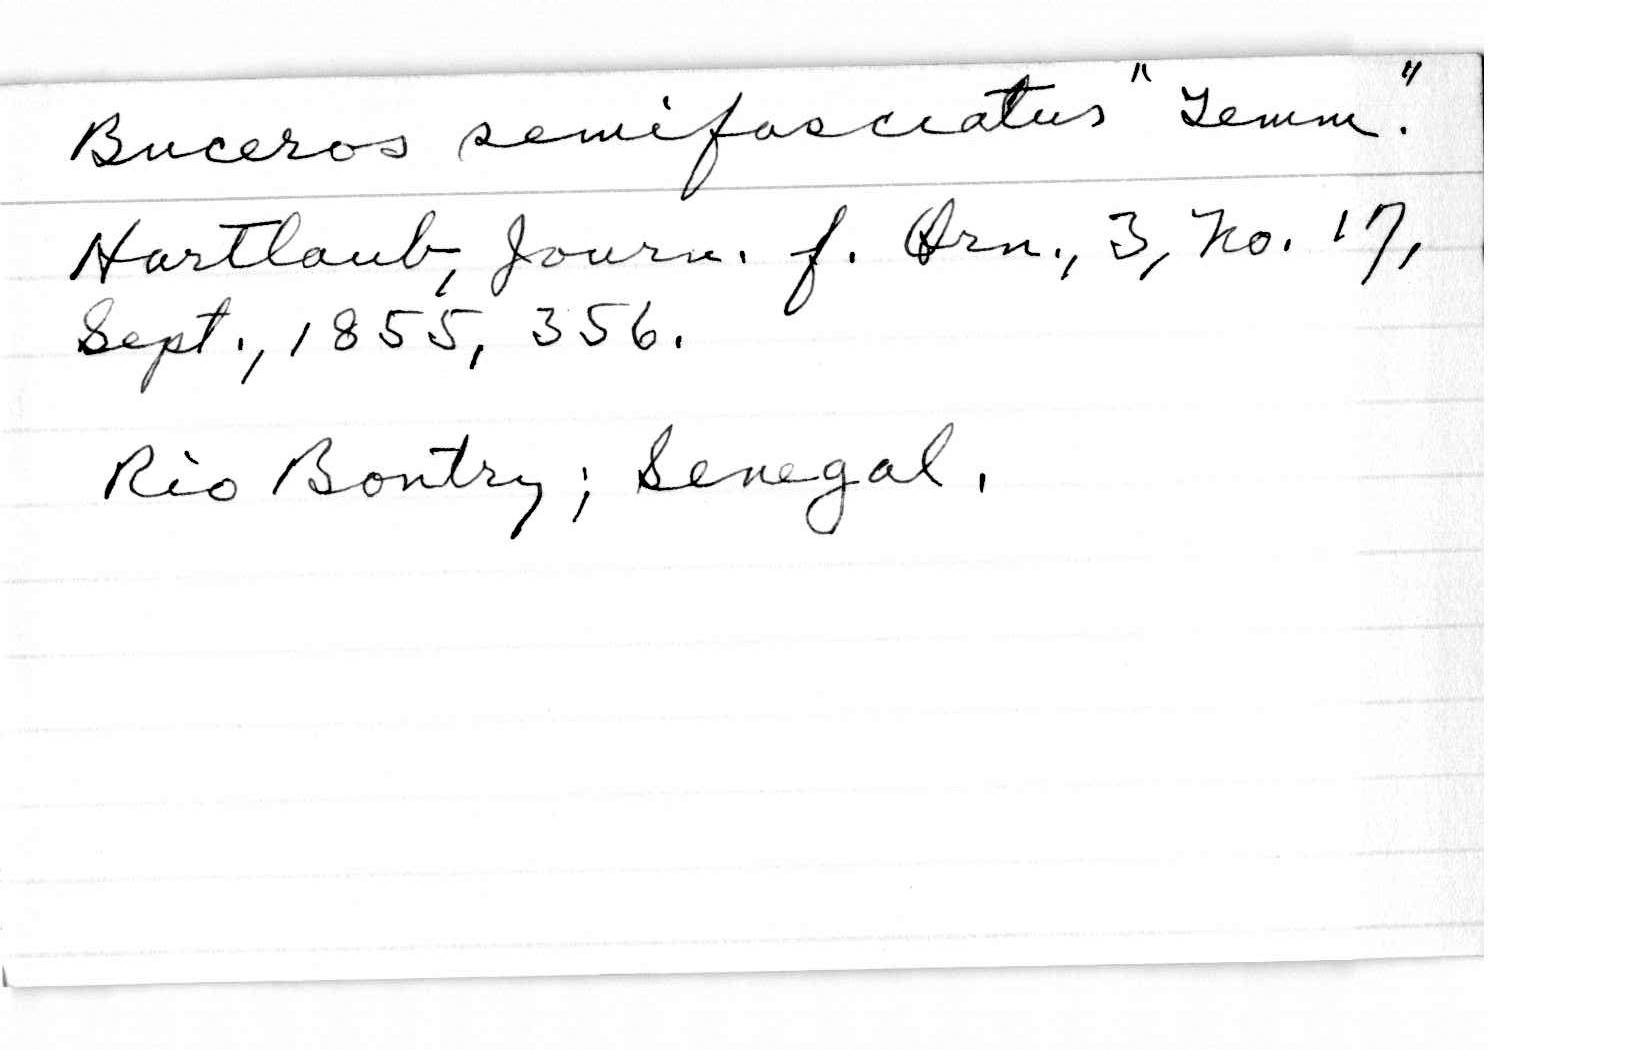 Buceros semifasciatus "Temm."
Hartlaub, Journ. f. Orn., 3, No. 17,
Sept., 1855, 356.
Rio Bontry; Senegal.